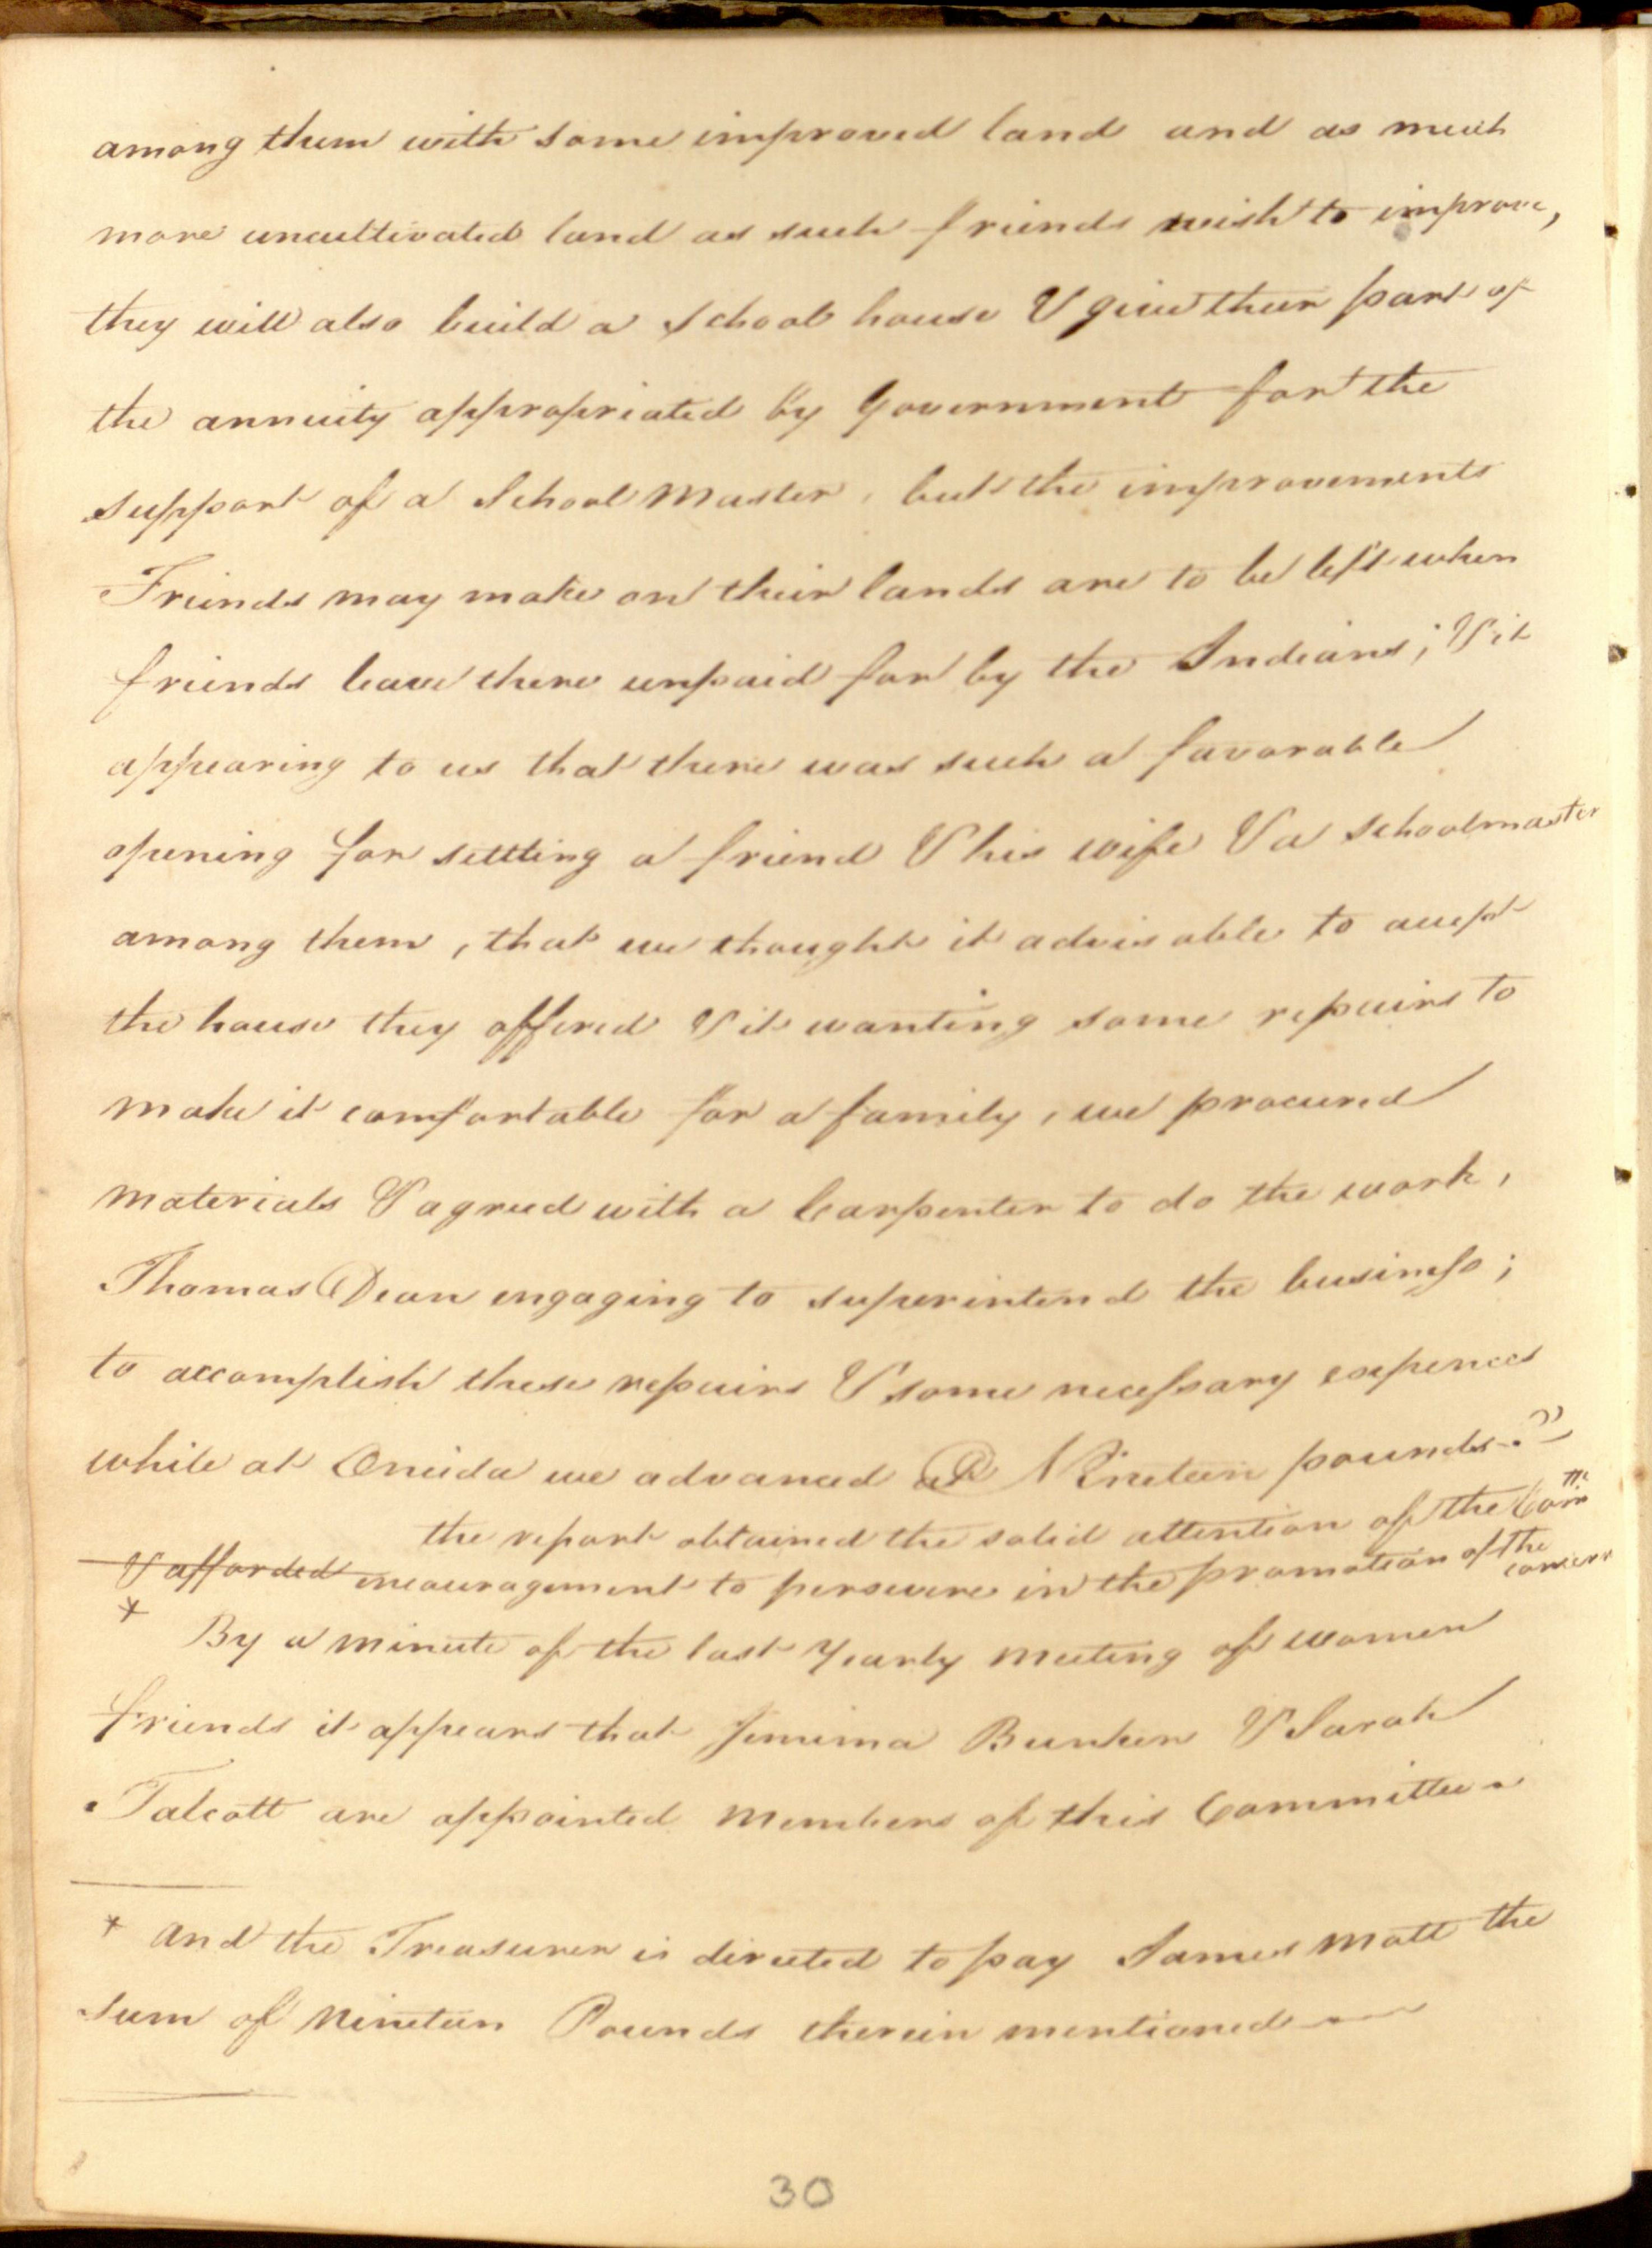 among them with some improved land and as much
more uncultivated land as such friends wish to improve,
they will also build a School house & give their part of
the annuity appropriated by Government for the
support of a School Master, but the improvements
Friends may make on their lands are to be left when
friends leave there unpaid for by the Indians; & it
appearing to us that there was such a favorable
opening for settling a friend & his wife & a schoolmaster
among them, that we thought it advisable to accept
the house they offered & it wanting some repairs to
make it comfortable for a family, we procured
materials & agreed with a Carpenter to do the work,
Thomas Dean engaging to superintend the business;
to accomplish these repairs & some necessary expences
while at Oneida we advanced Nineteen pounds."
the report obtained the solid attention of the Com.ᵐᵉ
& afforded encouragement to persevere in the promotion of the
concern
* By a minute of the last Yearly Meeting of women
friends it appears that Jemima Bunker & Sarah
Talcott are appointed Members of this Committee
* and the Treasurer is directed to pay James Mott the
sum of Nineteen Pounds therein mentioned
30